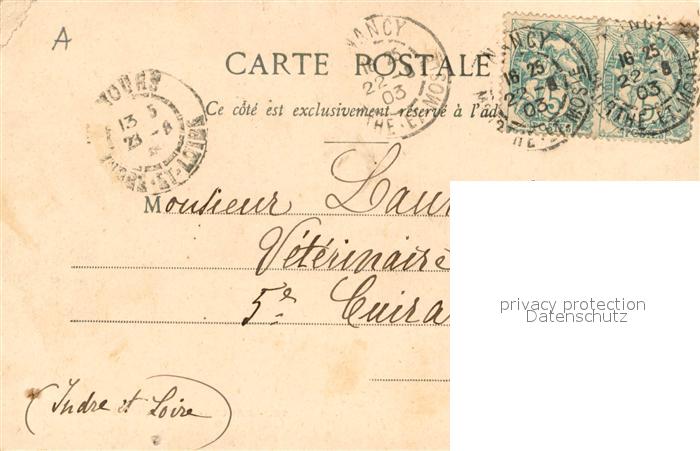 A
CARTE POSTALE
Ce côté est exclusivement réservé à l'ad
NANCY
16 25
22 - 8
03
MEURTHE-ET-MOSELLE
NANCY
16 25
22 - 8
03
NANCY
16 25
22 - 8
03
MEURTHE-ET-MOSELLE
TOURS
13 5
23 - 8
INDRE-ET-LOIRE
Monsieur Laur
Vétérinaire
5e Cuira
(Indre et Loire)
privacy protection
Datenschutz